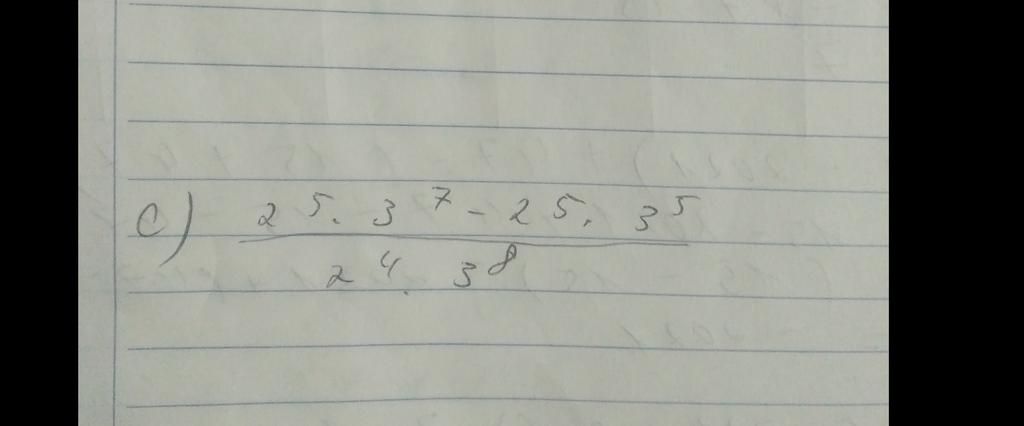 c) 2⁵. 3⁷ - 2⁵. 3⁵
2⁴. 3⁸